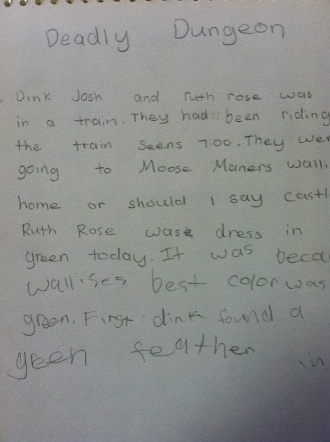 Deadly Dungeon
Dink Josh and Ruth rose was
in a train. They had been riding
the train seens 7:00. They wer
going to Moose Maners walli
home or should I say castl
Ruth Rose was dress in
green today. It was beca
wallises best color was
green. First dink found a
geen feather in